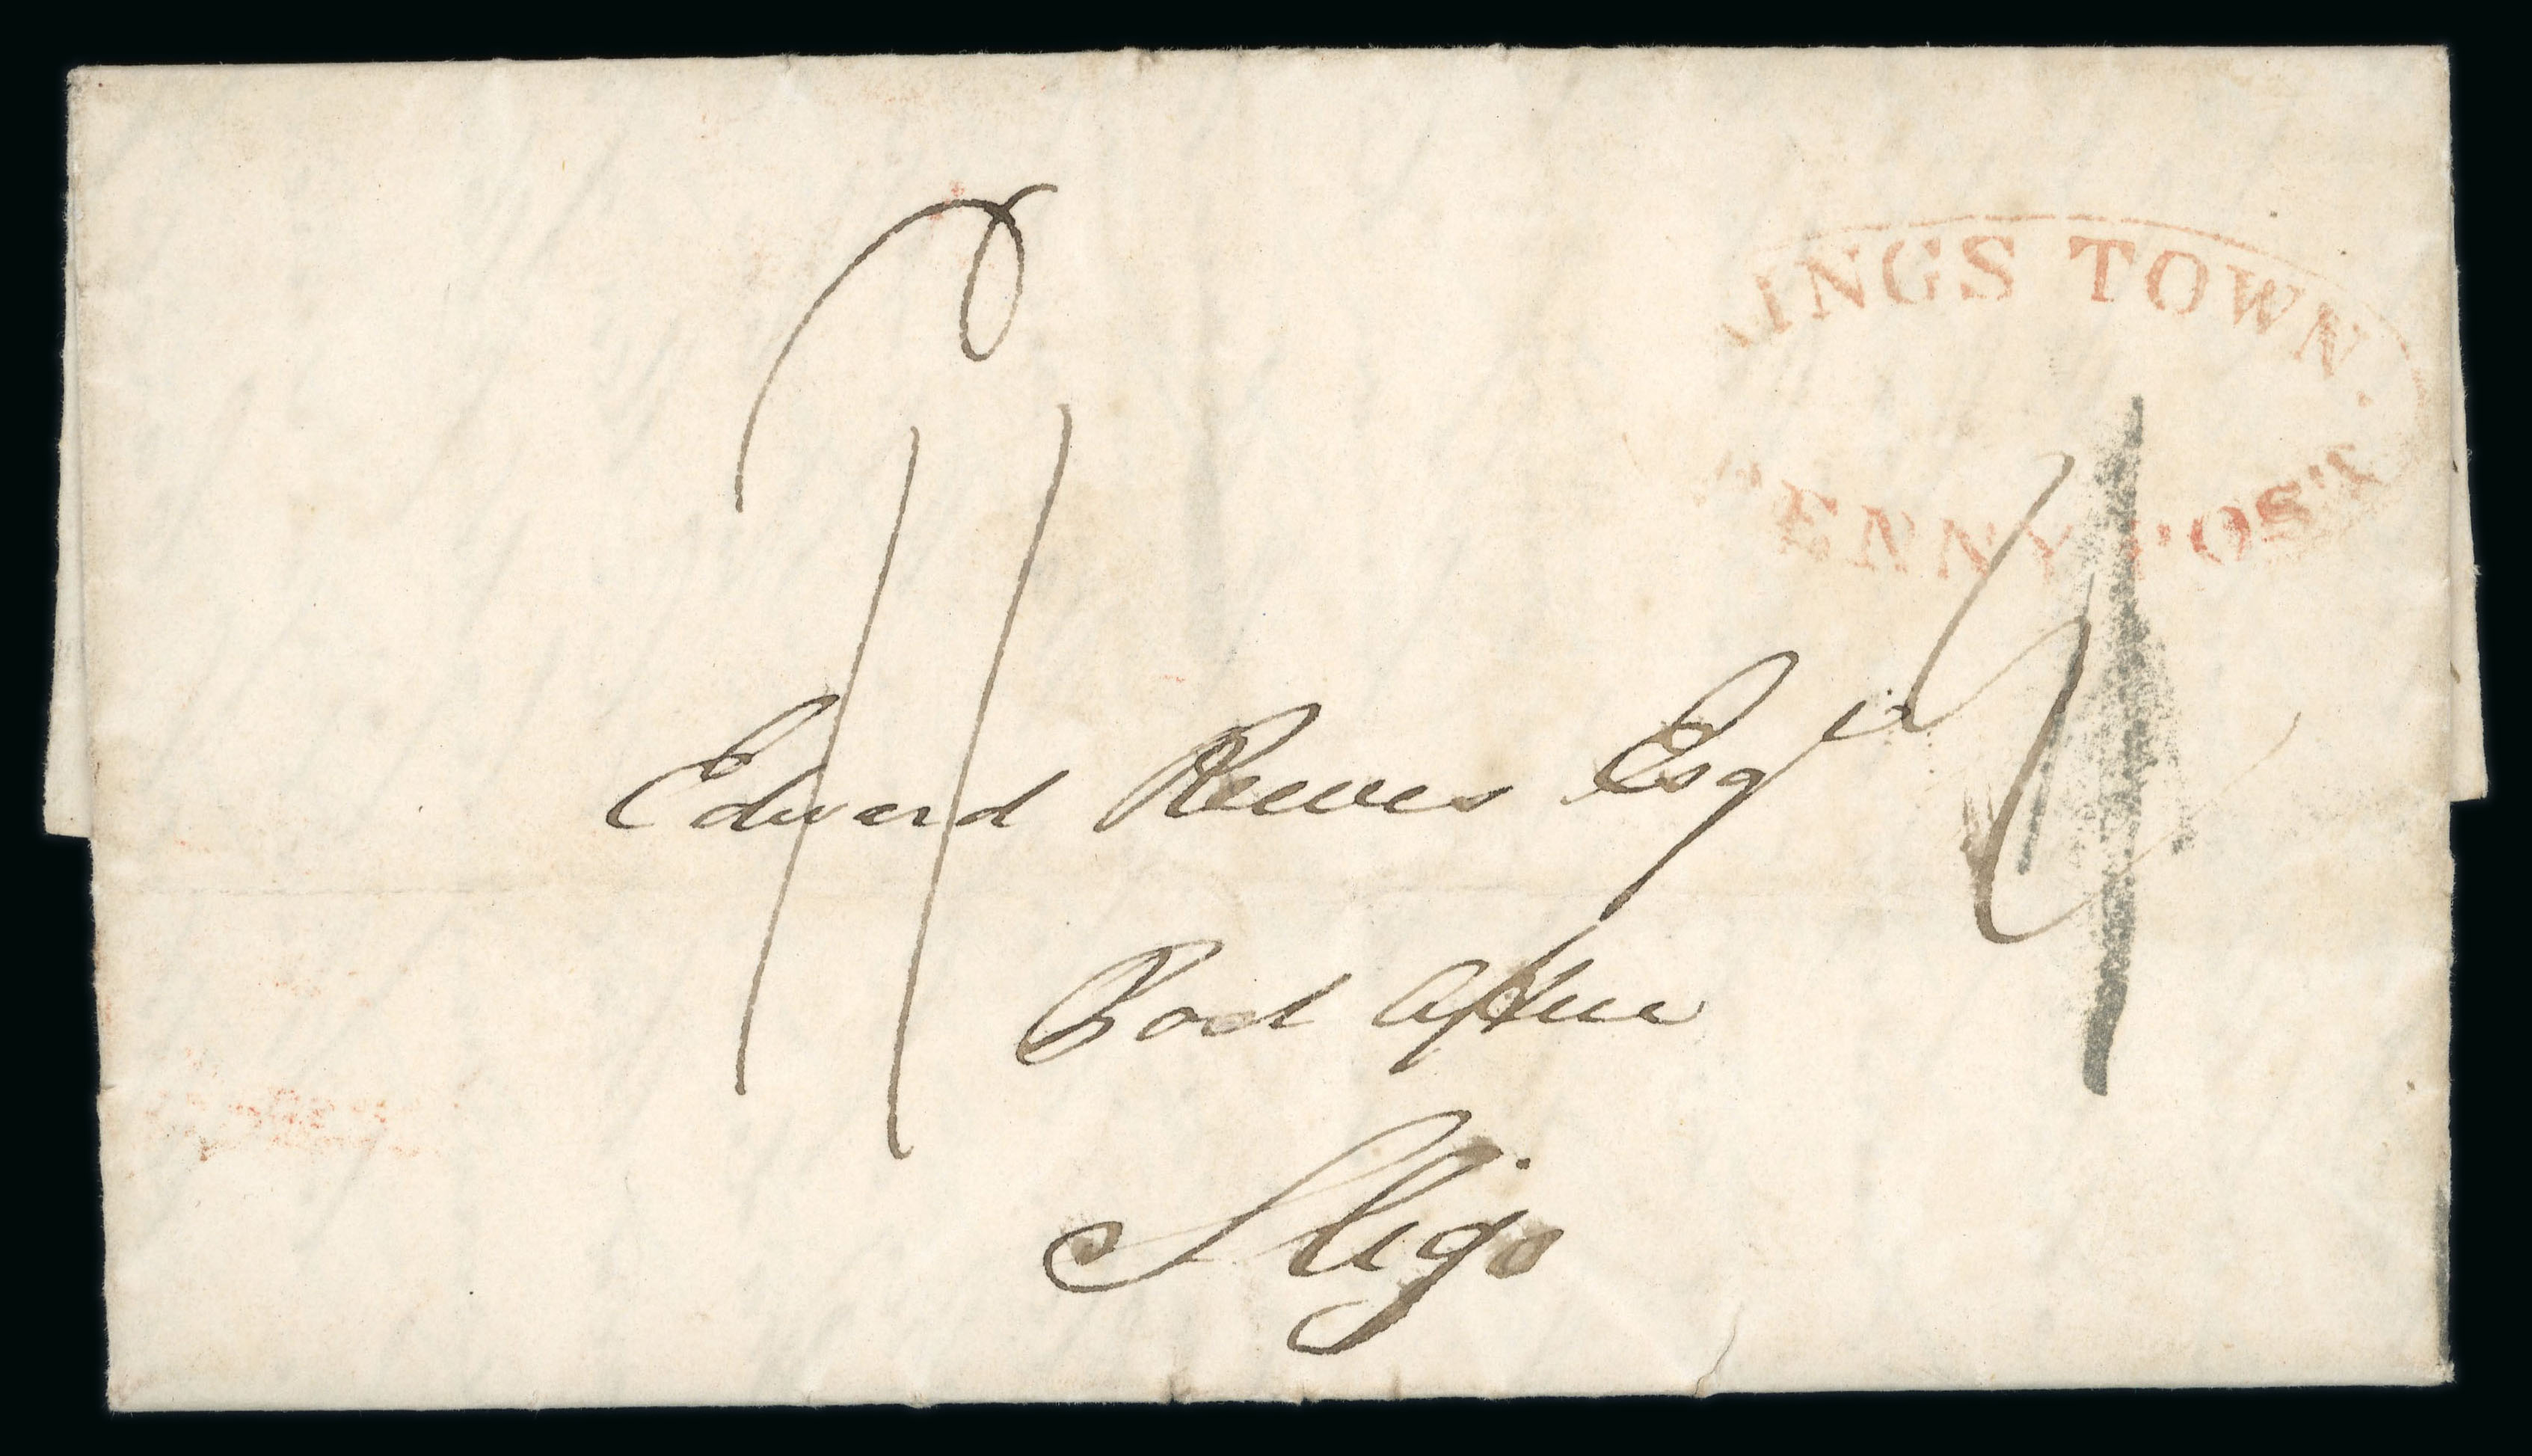 KINGS TOWN.
PENNY POST
11
Edward Reeves Esqr
Post Office
Sligo